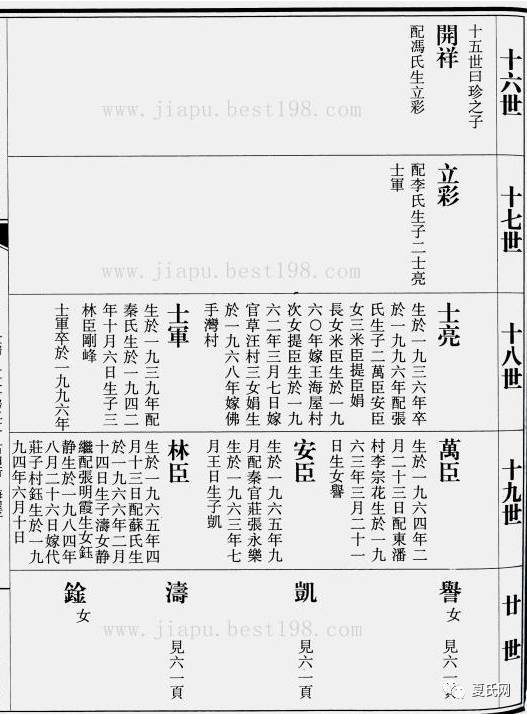 十六世
十五世曰珍之子
開祥
配馮氏生立彩
www.jiapu.best198.com
十七世
立彩
配李氏生子二士亮
士軍
www.jiapu.best198.com
十八世
士亮
生於一九三六年卒
於一九九六年配張
氏生子二萬臣安臣
女三米臣提臣娟
長女米臣生於一九
六〇年嫁王海屋村
次女提臣生於一九
六二年三月七日嫁
官草汪村三女娟生
於一九六八年嫁佛
手灣村
士軍
生於一九三九年配
秦氏生於一九四二
年十月六日生子三
林臣剛峰
士軍卒於一九九六年
十九世
萬臣
生於一九六四年二
月二十三日配東潘
村李宗花生於一九
六三年三月二十一
日生女譽
安臣
生於一九六五年九
月配秦官莊張永樂
生於一九六三年七
月王日生子凱
林臣
生於一九六五年四
月十三日配蘇氏生
於一九六六年二月
十四日生子濤女静
繼配張明霞生女鈺
静生於一九八四年
八月二十六日嫁代
莊子村鈺生於一九
九四年六月十日
廿世
譽
女 見六一頁
凱
見六一頁
濤
見六一頁
銓
女
www.jiapu.best198.com
夏氏网